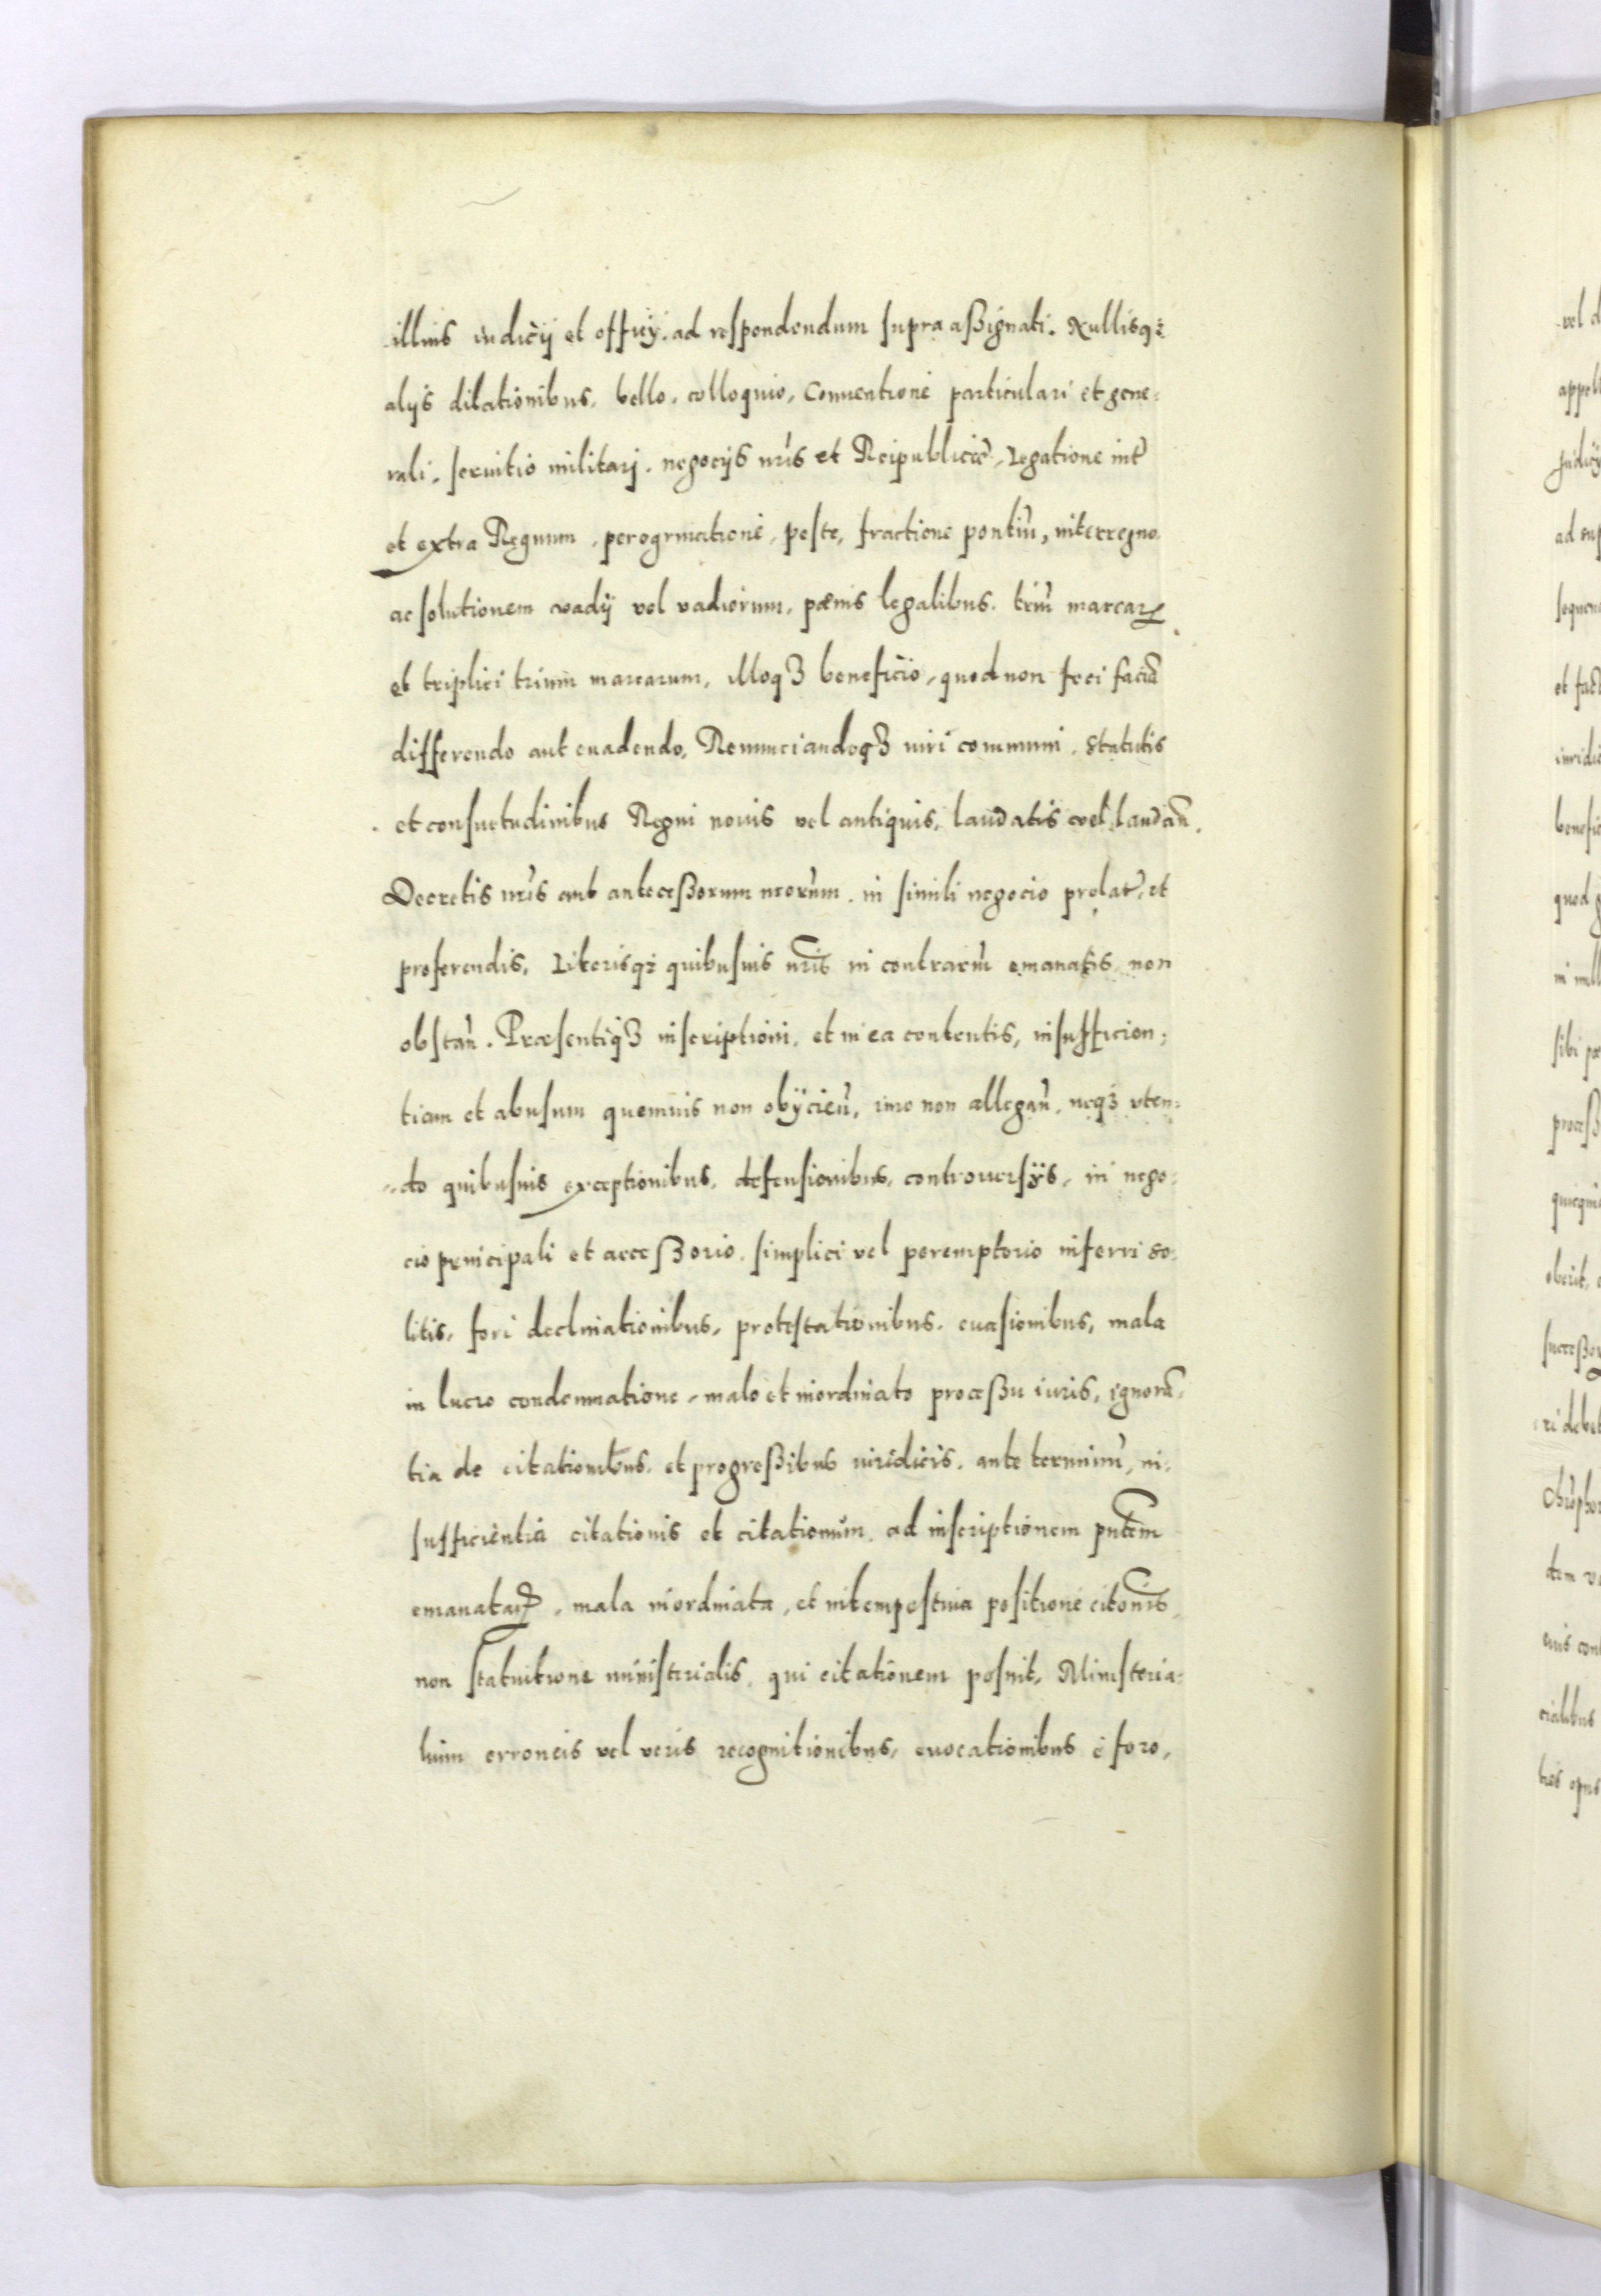 illius iudicij et officij. ad respondendum supra aßignati. Nullisqз
alijs dilationibus, bello, colloquio, Conuentione particulari et gene=
rali, seruitio militarj, negocijs nr̃is et Reipublicæ, Legatione int̃
et extra Regnum, peregrinatione, peste, fractione pontiũ, interregno
ac solutionem vadij vel vadiorum, pœnis legalibus, triũ marcaꝝ
et triplici trium marcarum, illoqз beneficio, quod non feci faciã
differendo aut euadendo, Renunciandoqз iuri communi, Statutis
et consuetudinibus Regni nouis vel antiquis, laudatis vel laudañ.
Decretis nr̃is aut anteceßorum nr̃orum. in simili negocio prolat̃, et
proferendis, Literisqз quibusuis nr̃is in contrariũ emanatis non
obstañ. Præsentiqз inscriptioni, et in ea contentis, insufficien=
tiam et abusum quemuis non obijcieñ, imo non allegañ, neqз vten=
do quibusuis exceptionibus, defensionibus, controuersijs, in nego=
cio principali et acceßorio, simplici vel peremptorio inferri so=
litis, fori declinationibus, protestationibus, euasionibus, mala
in lucro condemnatione, malo et inordinato proceßu iuris, ignorã=
tia de citationibus, et progreßibus iuridicis, ante terminũ, in=
sufficientia citationis et citationum, ad inscriptionem pñtem
emanataꝝ, mala inordinata, et intempestiua positione citõnis,
non statuitione ministerialis, qui citationem posuit, Ministeria=
lium erroneis vel veris recognitionibus, euocationibus è foro,